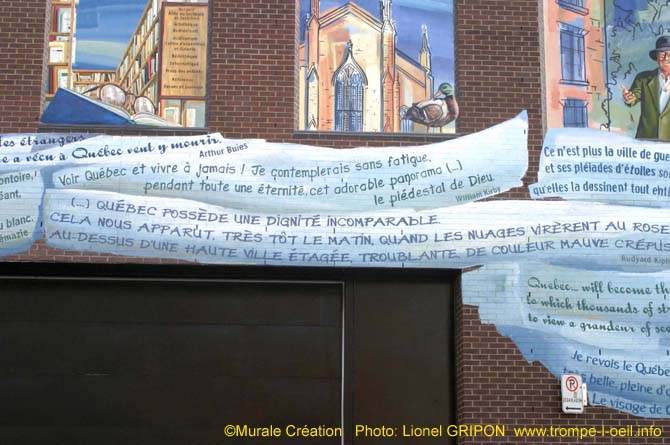 Accueil
Références
des étrangers
e a vécu à Québec veut y mourir
Arthur Buies
ontoire, l
éant,
u blanc.
émazie
Voir Québec et vivre à jamais ! Je contemplerais sans fatigue,
pendant toute une éternité, cet adorable panorama (...)
le piédestal de Dieu
William Kirby
Ce n'est plus la ville de gue
et ses pléiades d'étoiles so
qu'elles la dessinent tout ent
(...) QUÉBEC POSSÈDE UNE DIGNITÉ INCOMPARABLE.
CELA NOUS APPARUT, TRÈS TÔT LE MATIN, QUAND LES NUAGES VIRÈRENT AU ROSE
AU-DESSUS D'UNE HAUTE VILLE ÉTAGÉE, TROUBLANTE, DE COULEUR MAUVE CRÉPU
Rudyard Kipli
Quebec... will become th
to which thousands of st
to view a grandeur of sce
Je revois le Québe
très belle, pleine d'
Le visage de
P
©Murale Création Photo: Lionel GRIPON www.trompe-l-oeil.info